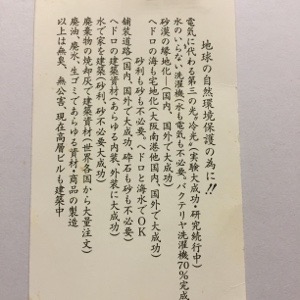 地球の自然環境保護の為に!!
電気に代わる第三の光〝冷光〟(実験大成功・研究続行中)
水のいらない洗濯機(水も電気も不必要。バクテリヤ洗濯機70%完成)
砂漠の緑地化(国内、国外で大成功)
ヘドロの海も宅地化(大阪南港他国内、国外で大成功)
砂利も砂も不必要、ヘドロと海水でOK
舗装道路(国内、国外で大成功、砕石も砂も不必要)
ヘドロの建築資材(あらゆる内装、外装に大成功)
水で家を建築(砂利、砂不必要大成功)
廃棄物の焼却灰で建築資材(世界各国から大量注文)
廃油、廃水、生ゴミであらゆる資材・商品の製造
以上は無臭、無公害、現在高層ビルも建築中